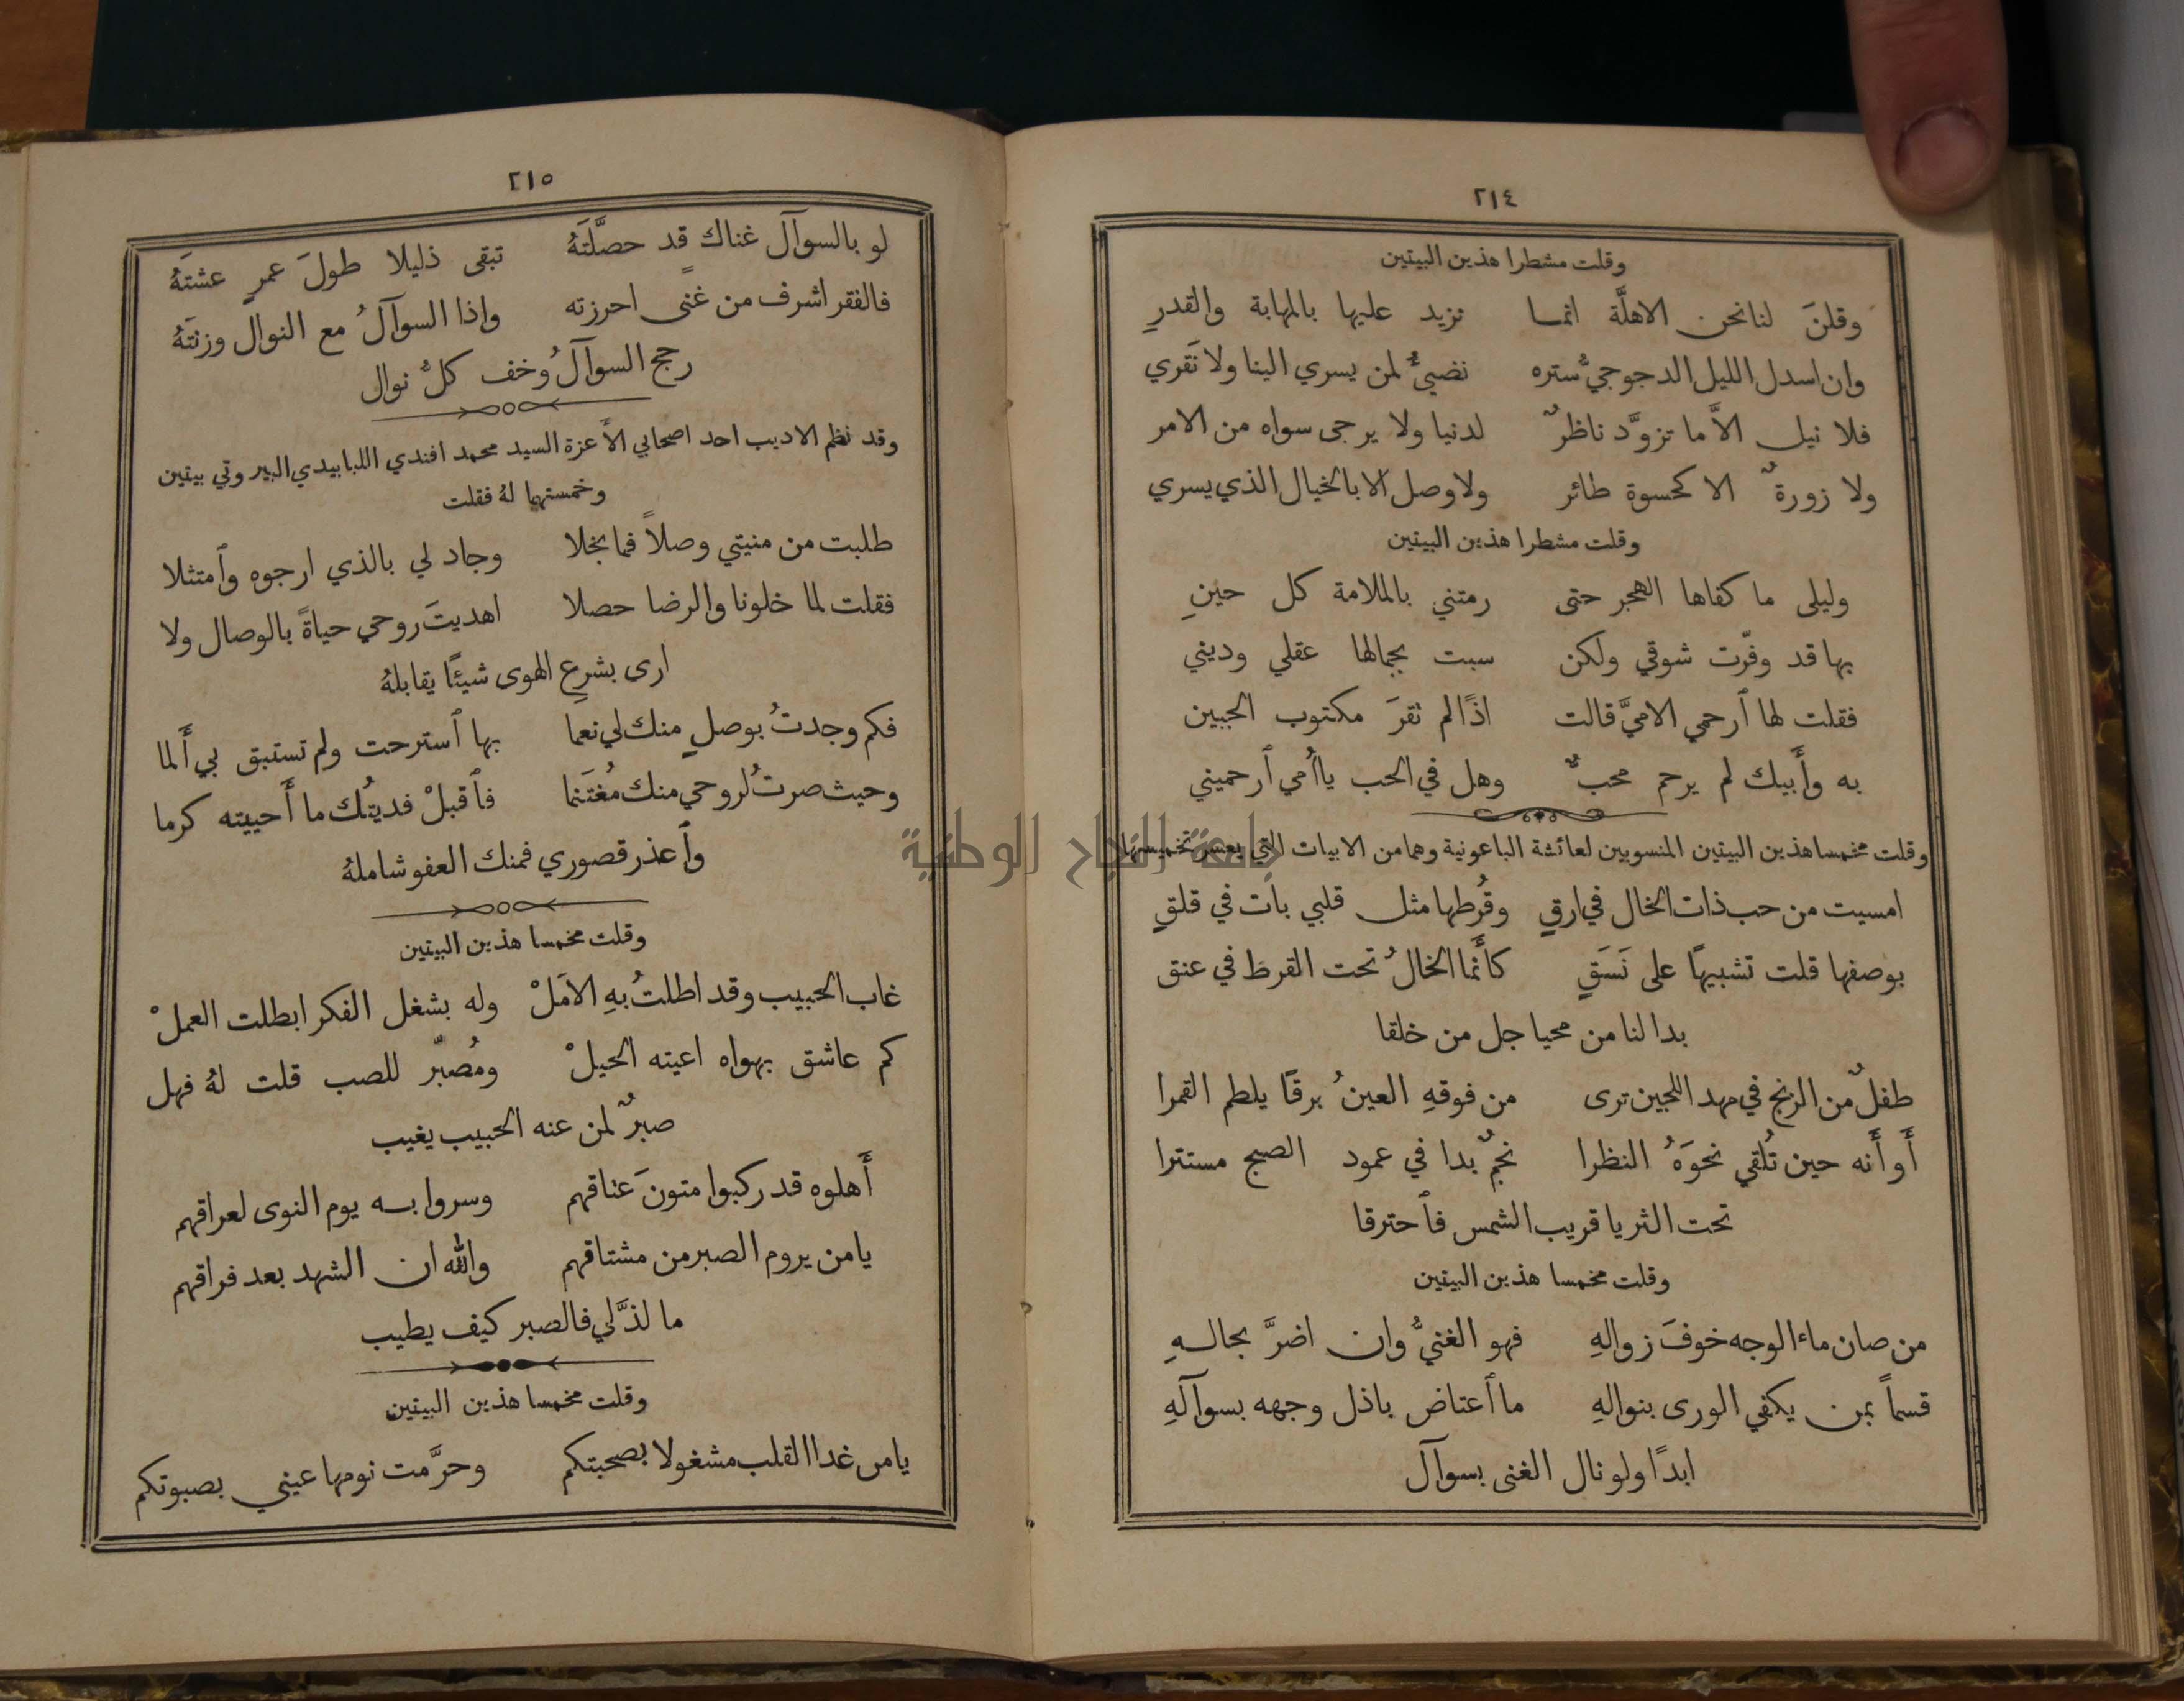 ٢١٤
وقلت مشطرا هذين البيتين
وقلنَ لنا نحن الاهلَّة انما نزيد عليها بالمهابة والقدرِ
وان اسدل الليل الدجوجيُّ ستره نضيُّ لمن يسري الينا ولا نَقري
فلا نيل الاَّ ما تزوَّد ناظرٌ لدنيا ولا يرجى سواه من الامر
ولا زورةٌ الا كحسوة طائر ولا وصل الا بالخيال الذي يسري
وقلت مشطرا هذين البيتين
وليلى ما كفاها الهجر حتى رمتني بالملامة كل حينِ
بها قد وفّرت شوقي ولكن سبت بجمالها عقلي وديني
فقلت لها ٱرحمي الاميَّ قالت اذًا لم تقرَ مكتوب الجبين
به وأَبيك لم يرحم محبٌّ وهل في الحب يا أُمي ٱرحميني
وقلت مخمسا هذين البيتين المنسوبين لعائشة الباعونية وهما من الابيات التي يعسر تخميسها
امسيت من حب ذات الخال في ارقٍ وقُرطها مثل قلبي بات في قلقٍ
بوصفها قلت تشبيهًا على نَسَقٍ كأَنما الخالُ تحت القرط في عنق
بدا لنا من محيا جل من خلقا
طفلٌ من الزنج في مهد اللجين ترى من فوقهِ العينُ برقًا يلطم القمرا
أَو أَنه حين تُلقي نحوَهُ النظرا نجمٌ بدا في عمود الصبح مستترا
تحت الثريا قريب الشمس فٱحترقا
وقلت مخمسا هذين البيتين
من صان ماء الوجه خوفَ زوالهِ فهو الغنيُّ وان اضرَّ بحالهِ
قسماً بمن يكفي الورى بنوالهِ ما ٱعتاض باذل وجهه بسوآلهِ
ابدًا ولو نال الغنى بسوآل
٢١٥
لو بالسوآل غناك قد حصَّلتَهُ تبقى ذليلا طولَ عمرٍ عشتَهُ
فالفقر اشرف من غنًى احرزته واذا السوآلُ مع النوال وزنتَهُ
رجح السوآلُ وخف كلُّ نوال
وقد نظم الاديب احد اصحابي الاَعزة السيد محمد افندي اللبابيدي البيروتي بيتين
وخمستهما لهُ فقلت
طلبت من منيتي وصلاً فما بخلا وجاد لي بالذي ارجوه وٱمتثلا
فقلت لما خلونا والرضا حصلا اهديتَ روحي حياةً بالوصال ولا
ارى بشرعِ الهوى شيئًا يقابلهُ
فكم وجدتُ بوصلٍ منك لي نعما بها ٱسترحت ولم تستبق بي أَلما
وحيث صرتُ لروحي منك مُغتَنما فٱقبلْ فديتُك ما أَحييته كرما
وٱعذر قصوري فمنك العفو شاملهُ
وقلت مخمسا هذين البيتين
غاب الحبيب وقد اطلتُ بهِ الاَملْ وله بشغل الفكر ابطلت العملْ
كم عاشق بهواه اعيته الحيلْ ومُصبّر للصب قلت لهُ فهل
صبرٌ لمن عنه الحبيب يغيب
أَهلوه قد ركبوا متونَ عتاقهم وسروا به يوم النوى لعراقهم
يا من يروم الصبر من مشتاقهم والله ان الشهد بعد فراقهم
ما لذَّ لي فالصبر كيف يطيب
وقلت مخمسا هذين البيتين
يا من غدا القلب مشغولا بصحبتكم وحرَّمت نومها عيني بصبوتكم
جامعة النجاح الوطنية